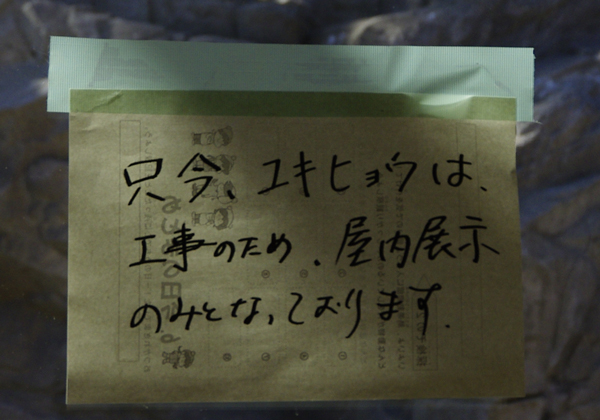 只今、ユキヒョウは、
工事のため、屋内展示
のみとなっております.